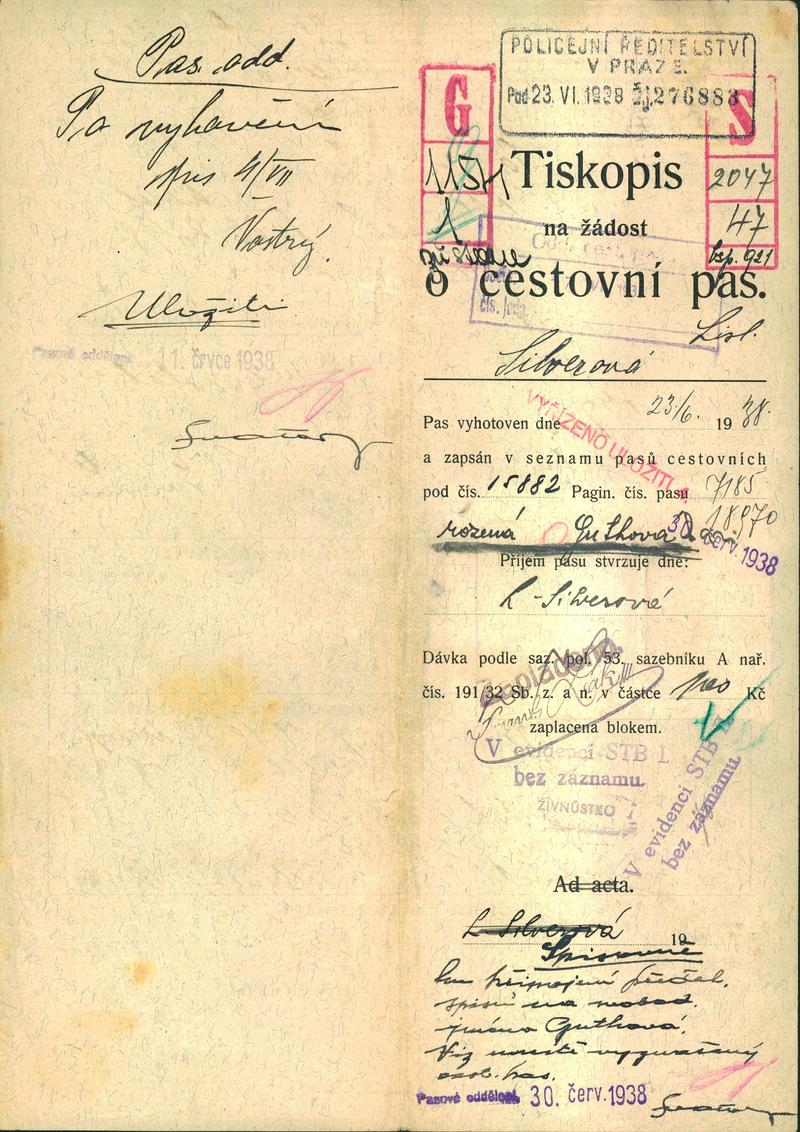 Pas. odd.
Po vyhovění
spis 4/VII
Vostrý.
Uložiti
Pasové oddělení 11. črvce 1938
POLICEJNÍ ŘEDITELSTVÍ
V PRAZE.
Pod 23. VI. 1938 čj. 276883
G
S
1154
1
2047
47
Tiskopis
na žádost
o cestovní pas.
Silverová
Pas vyhotoven dne 23/6. 1938.
VYŘÍZENO ULOŽITI
a zapsán v seznamu pasů cestovních
pod čís. 15882 Pagin. čís. pasu 7185
18970
rozená Guthová
30. červ. 1938
Příjem pasu stvrzuje dne:
L. Silverová
Dávka podle saz. pol. 53. sazebníku A nař.
čís. 191/32 Sb. z. a n. v částce 100 Kč
Zaplaceno.
zaplacena blokem.
V evidenci STB I.
bez záznamu.
ŽIVNŮSTKO
V evidenci STB
bez záznamu.
Ad acta.
L Silverová 19
Spisovně
spisů na
jméno Guthová.
Viz
Pasové oddělení, 30. červ. 1938